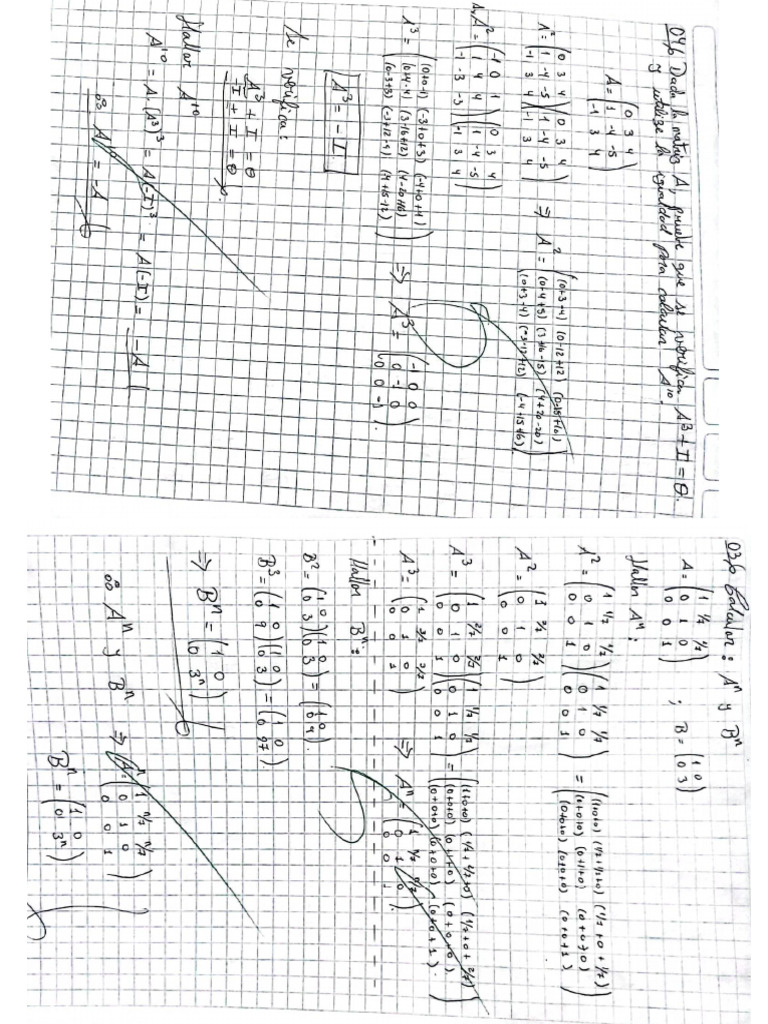 04) Dada la matriz A, pruebe que se verifica A³ + I = θ
y utilize la igualdad para calcular A¹⁰.
A = (0 3 4
1 -4 -5
-1 3 4)
A² = (0 3 4
1 -4 -5
-1 3 4) (0 3 4
1 -4 -5
-1 3 4) ⇒ A² = ((0+3-4) (0-12+12) (0-15+16)
(0-4+5) (3+16-15) (4+20-20)
(0+3-4) (-3-12+12) (-4-15+16))
A.A² = (-1 0 1
1 4 4
-1 -3 -3) (0 3 4
1 -4 -5
-1 3 4)
A³ = ((0+0-1) (-3+0+3) (-4+0+4)
(0+4-4) (3-16+12) (4-20+16)
(0-3+3) (-3+12-9) (-4+15-12)) ⇒ A³ = (-1 0 0
0 -1 0
0 0 -1).
A³ = -I
Se verifica:
A³ + I = θ
-I + I = θ
Hallar A¹⁰
A¹⁰ = A.(A³)³ = A(-I)³ = A(-I) = -A
∴ A¹⁰ = -A
03) Calcular: Aⁿ y Bⁿ
A = (1 1/7 1/7
0 1 0
0 0 1) ; B = (1 0
0 3)
Hallar Aⁿ:
A² = (1 1/7 1/7
0 1 0
0 0 1) (1 1/7 1/7
0 1 0
0 0 1) = ((1+0+0) (1/7+1/7+0) (1/7+0+1/7)
(0+0+0) (0+1+0) (0+0+0)
(0+0+0) (0+0+0) (0+0+1))
A² = (1 2/7 2/7
0 1 0
0 0 1)
A³ = (1 2/7 2/7
0 1 0
0 0 1) (1 1/7 1/7
0 1 0
0 0 1) = ((1+0+0) (1/7+2/7+0) (1/7+0+2/7)
(0+0+0) (0+1+0) (0+0+0)
(0+0+0) (0+0+0) (0+0+1))
A³ = (1 3/7 3/7
0 1 0
0 0 1) ⇒ Aⁿ = (1 n/7 n/7
0 1 0
0 0 1).
Hallar Bⁿ:
B² = (1 0
0 3) (1 0
0 3) = (1 0
0 9)
B³ = (1 0
0 9) (1 0
0 3) = (1 0
0 27).
⇒ Bⁿ = (1 0
0 3ⁿ)
∴ Aⁿ y Bⁿ ⇒ Aⁿ = (1 n/7 n/7
0 1 0
0 0 1)
Bⁿ = (1 0
0 3ⁿ)